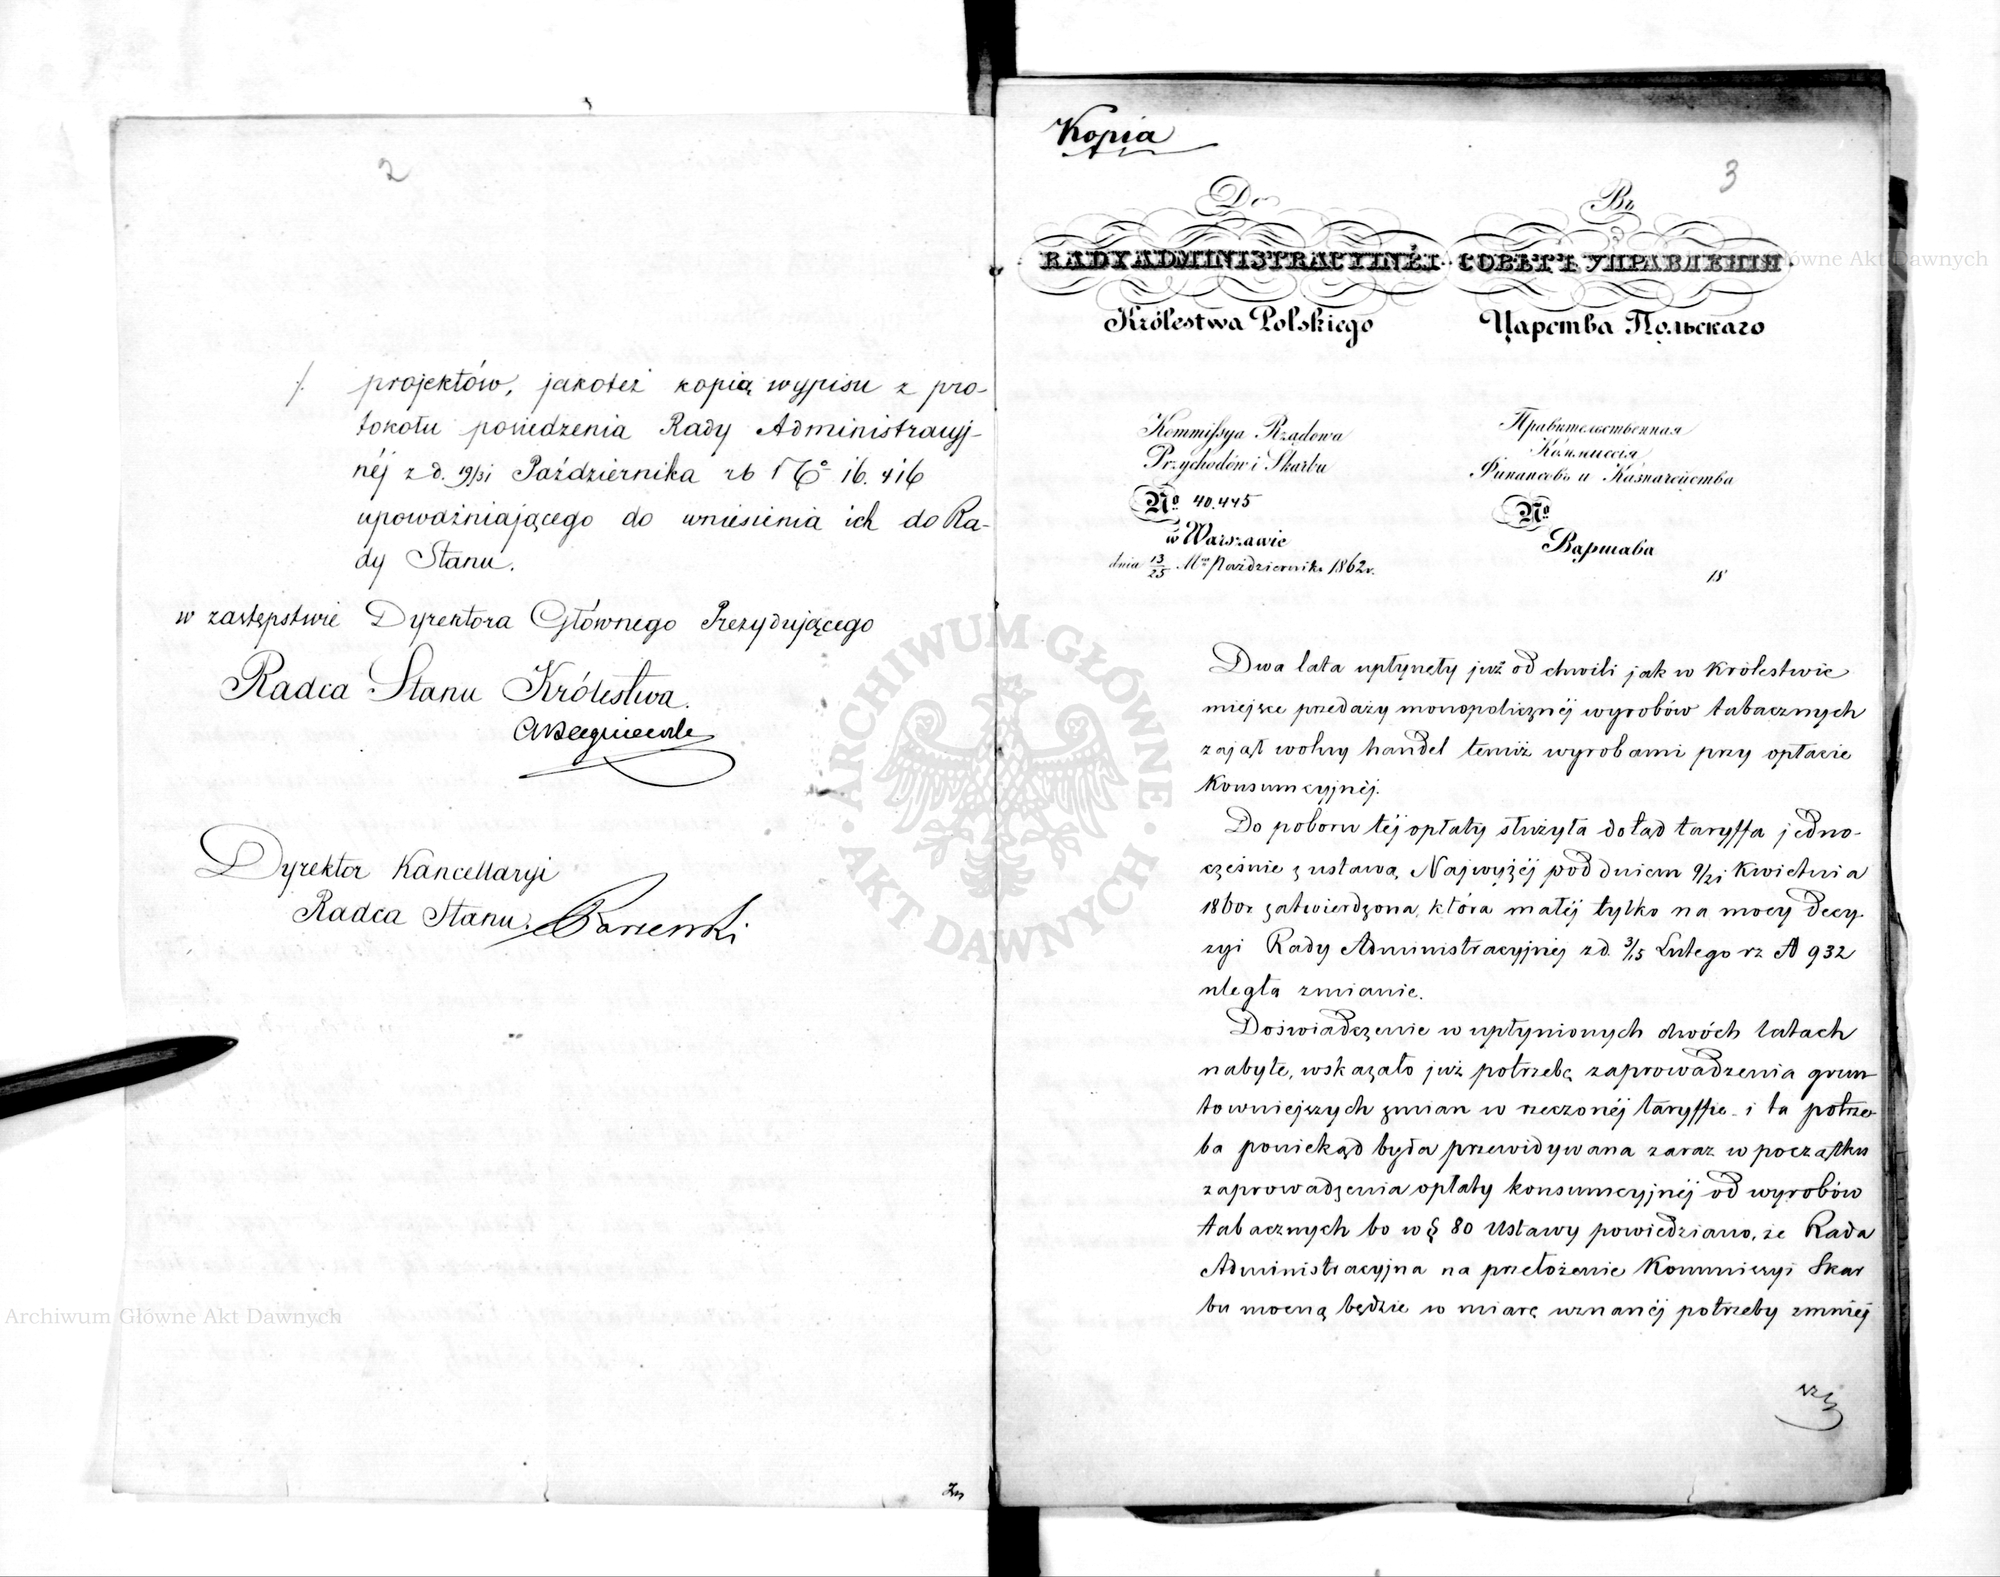 2
/. projektów, jakoteż kopią wypisu z pro-
tokołu posiedzenia Rady Administracyj-
néj z d. 19/31 Października rb No 16.416
upoważniającego do wniesienia ich do Ra-
dy Stanu.
w zastępstwie Dyrektora Głównego Prezydującego
Radca Stanu Królestwa.
Dyrektor Kancellaryi
Radca Stanu.
Kopia
3
Do
RADY ADMINISTRACYINÉJ
Królestwa Polskiego
Въ
СОВѢТЪ УПРАВЛЕНІЯ.
Царства Польскаго
Kommissya Rządowa
Przychodów i Skarbu
No 40.445
w Warszawie
dnia 13/25 Mca Października 1862 r.
Правительственная
Коммиссія
Финансовъ и Казначейства
No
Варшава
18
Dwa lata upłynęły już od chwili jak w Królestwie
miejsce przedaży monopolicznéj wyrobów tabacznych
zajął wolny handel temiż wyrobami przy opłacie
konsumcyjnéj.
Do poboru téj opłaty służyła dotąd taryffa jedno-
cześnie z ustawą Najwyżéj pod dniem 9/21 Kwietnia
1860r. zatwierdzona, która małéj tylko na mocy decy-
zyi Rady Administracyjnéj z d. 3/15 Lutego rz No 932
uległa zmianie.
Doświadczenie w upłynionych dwóch latach
nabyte, wskazało już potrzebę zaprowadzenia grun-
towniejszych zmian w rzeczonéj taryffie - i ta potrze-
ba poniekąd była przewidywana zaraz w początku
zaprowadzenia opłaty konsumcyjnéj od wyrobów
tabacznych bo w § 80 Ustawy powiedziano, że Rada
Administracyjna na przełożenie Kommiszyi Skar
bu mocną będzie w miarę uznanéj potrzeby zmniej
Archiwum Główne Akt Dawnych
Główne Akt Dawnych
ARCHIWUM GŁÓWNE · AKT DAWNYCH ·